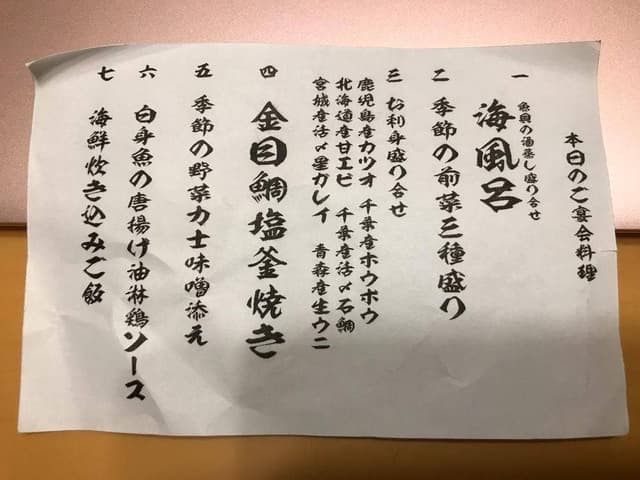 本日のご宴会料理
一 魚貝の酒蒸し盛り合せ
海風呂
二 季節の前菜三種盛り
三 お刺身盛り合せ
鹿児島産カツオ 千葉産ホウボウ
北海道産甘エビ 千葉産活〆石鯛
宮城産活〆星ガレイ 青森産生ウニ
四 金目鯛塩釜焼き
五 季節の野菜力士味噌添え
六 白身魚の唐揚げ油淋鶏ソース
七 海鮮炊き込みご飯